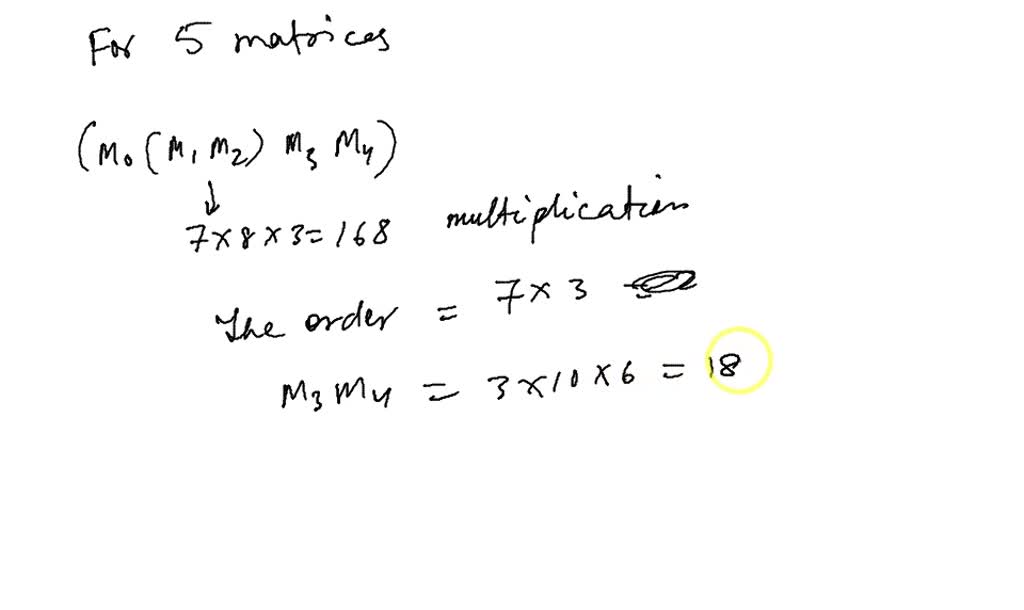 For 5 matrices
(M₀ (M₁ M₂) M₃ M₄)
↓
7 × 8 × 3 = 168 multiplication
The order = 7 × 3
M₃ M₄ = 3 × 10 × 6 = 18